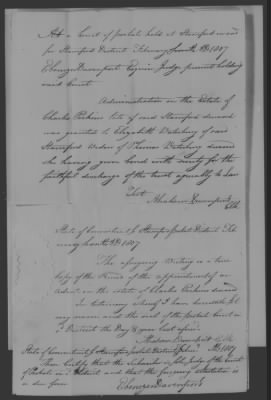 At a Court of Probate held at Stamford in and
for Stamford District February fourth AD 1807
Ebenezer Davenport Esquire Judge present holding
said Court
Administration on the Estate of
Charles Perkins late of said Stamford deceased
was granted to Elizabeth Waterbury of said
Stamford Widow of Thomas Waterbury deceased
she having given bond with surety for the
faithful discharge of the trust agreeably to Law
Test
Abraham Davenport Clk
State of Connecticut Stamford Probate District
AD 1807
The foregoing Writing is a true
Copy of the Record of the appointment of an
Admr on the estate of Charles Perkins deceased
In testimony whereof I have hereunto set
my name and the seal of the Probate Court in
District the Day & year last aforesd
Abraham Davenport Clk
State of Connecticut Stamford Probate District 1807
I hereby Certify that the Subscriber is Judge of the Court
of Probate in District and that the foregoing attestation is
in due form
Ebenezer Davenport